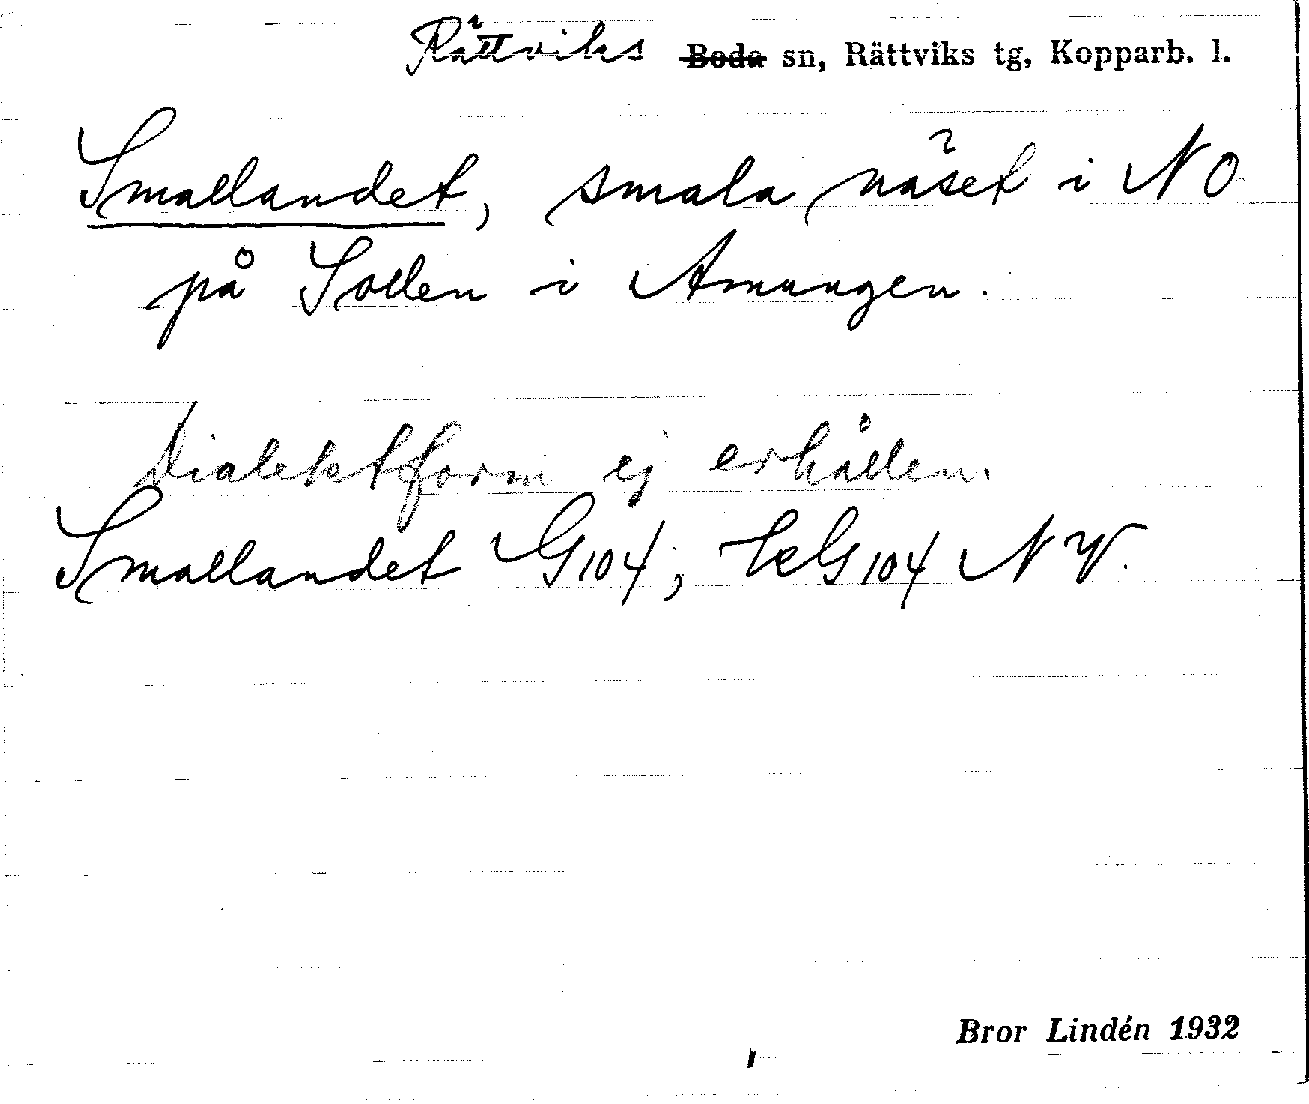 Rättviks Boda sn, Rättviks tg, Kopparb. l.
Smallandet, smala näset i NO
på Sollen i Amungen.
Dialektform ej erhållen.
Smallandet G104, G104 NV.
Bror Lindén 1932